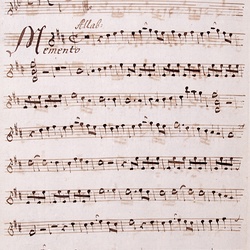 Allab:
Memento